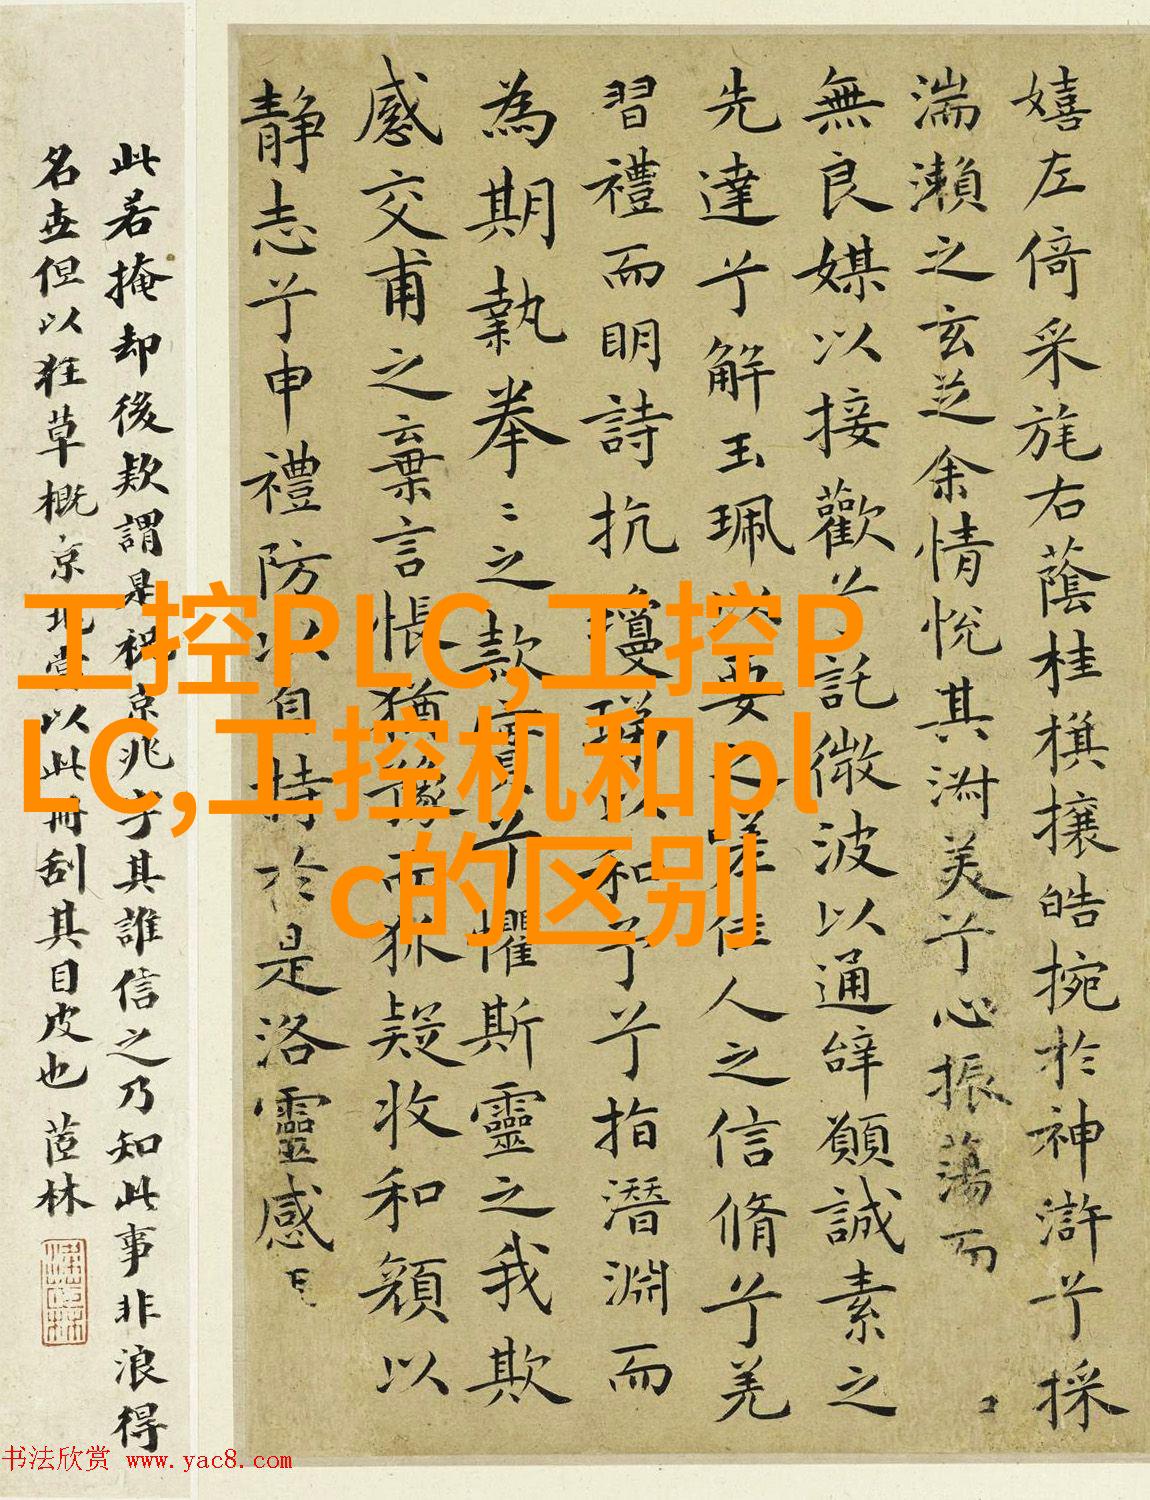 嬉左倚采旄右蔭桂旗攘皓捥於神滸兮採
湍瀨之玄芝余情悅其淑美兮心振蕩而
無良媒以接歡兮託微波以通辭願誠素之
先達兮解玉珮以要之嗟佳人之信脩兮羌
習禮而明詩抗瓊珶以和予兮指潛淵而
為期執拳〻之款實兮懼斯靈之我欺
感交甫之棄言悵猶豫而狐疑收和顏以
静志兮申禮防以自持於是洛靈感
此若掩却後款謂是祝京兆字其誰信之乃知此事非浪得
名世但以狂草概京兆當以此冊刮其目皮也 茝林
工控PLC,工控P
LC,工控机和pl
c的区别
书法欣赏 www.yac8.com